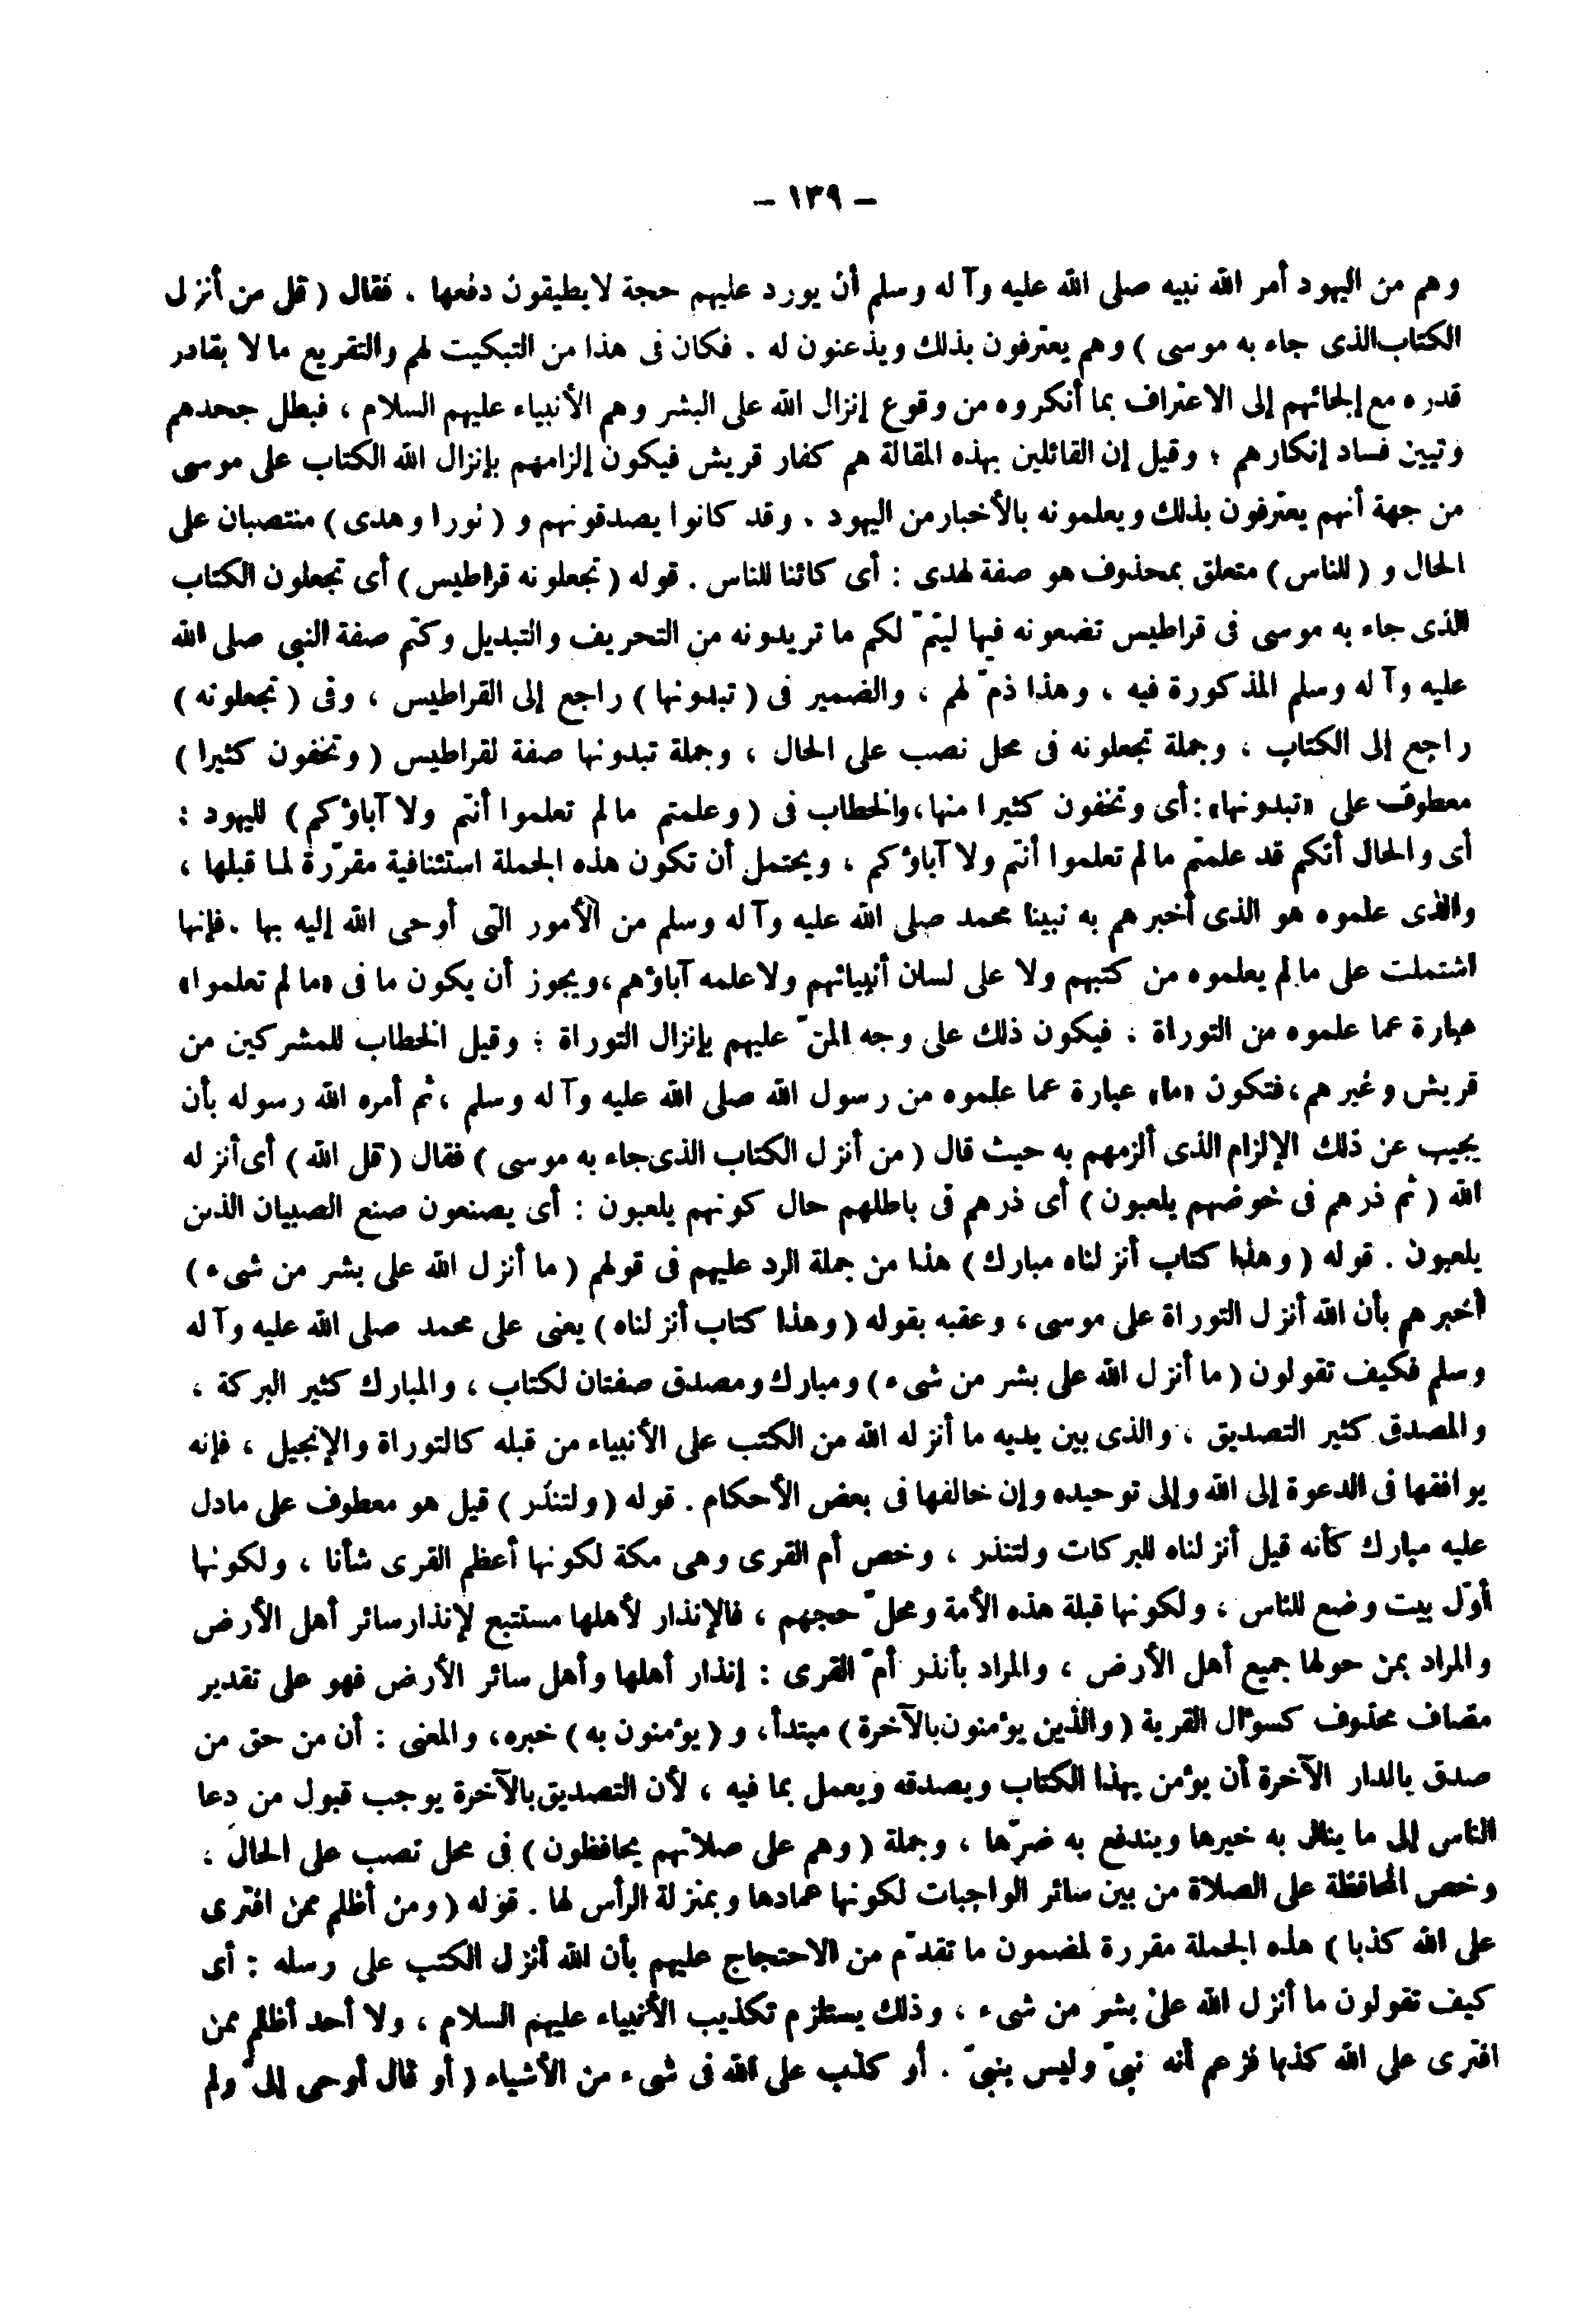 – ١٣٩ –
وهم من اليهود أمر الله نبيه صلى الله عليه وآله وسلم أن يورد عليهم حجة لا يطيقون دفعها ، فقال ( قل من أنزل
الكتاب الذى جاء به موسى ) وهم يعترفون بذلك ويذعنون له . فكان فى هذا من التبكيت لهم والتقريع ما لا يقادر
قدره مع إلجائهم إلى الاعتراف بما أنكروه من وقوع إنزال الله على البشر وهم الأنبياء عليهم السلام ، فبطل جحدهم
وتبين فساد إنكارهم ؛ وقيل إن القائلين بهذه المقالة هم كفار قريش فيكون إلزامهم بإنزال الله الكتاب على موسى
من جهة أنهم يعترفون بذلك ويعلمونه بالأخبار من اليهود . وقد كانوا يصدقونهم و ( نورا وهدى ) منتصبان على
الحال و ( للناس ) متعلق بمحذوف هو صفة لهدى : أى كائنا للناس . قوله ( تجعلونه قراطيس ) أى تجعلون الكتاب
الذى جاء به موسى فى قراطيس تضعونه فيها ليتمّ لكم ما تريدونه من التحريف والتبديل وكتم صفة النبى صلى الله
عليه وآله وسلم المذكورة فيه ، وهذا ذمّ لهم ، والضمير فى ( تبدونها ) راجع إلى القراطيس ، وفى ( تجعلونه )
راجع إلى الكتاب ، وجملة تجعلونه فى محل نصب على الحال ، وجملة تبدونها صفة لقراطيس ( وتخفون كثيرا )
معطوف على «تبدونها» : أى وتخفون كثيرا منها، والخطاب فى ( وعلمتم مالم تعلموا أنتم ولا آباؤكم ) لليهود :
أى والحال أنكم قد علمتم مالم تعلموا أنتم ولا آباؤكم ، ويحتمل أن تكون هذه الجملة استئنافية مقرّرة لما قبلها ،
والذى علموه هو الذى أخبرهم به نبينا محمد صلى الله عليه وآله وسلم من الأمور التى أوحى الله إليه بها . فإنها
اشتملت على مالم يعلموه من كتبهم ولا على لسان أنبيائهم ولا علمه آباؤهم، ويجوز أن يكون ما فى «ما لم تعلموا»
عبارة عما علموه من التوراة ، فيكون ذلك على وجه المنّ عليهم بإنزال التوراة ؛ وقيل الخطاب للمشركين من
قريش وغيرهم، فتكون «ما» عبارة عما علموه من رسول الله صلى الله عليه وآله وسلم ، ثم أمره الله رسوله بأن
يجيب عن ذلك الإلزام الذى ألزمهم به حيث قال ( من أنزل الكتاب الذى جاء به موسى ) فقال ( قل الله ) أى أنزله
الله ( ثم ذرهم فى خوضهم يلعبون ) أى ذرهم فى باطلهم حال كونهم يلعبون : أى يصنعون صنع الصبيان الذين
يلعبون . قوله ( وهذا كتاب أنزلناه مبارك ) هذا من جملة الرد عليهم فى قولهم ( ما أنزل الله على بشر من شىء )
أخبرهم بأن الله أنزل التوراة على موسى ، وعقبه بقوله ( وهذا كتاب أنزلناه ) يعنى على محمد صلى الله عليه وآله
وسلم فكيف تقولون ( ما أنزل الله على بشر من شىء ) ومبارك ومصدق صفتان لكتاب ، والمبارك كثير البركة ،
والمصدق كثير التصديق ، والذى بين يديه ما أنزله الله من الكتب على الأنبياء من قبله كالتوراة والإنجيل ، فإنه
يوافقها فى الدعوة إلى الله وإلى توحيده وإن خالفها فى بعض الأحكام . قوله ( ولتنذر ) قيل هو معطوف على مادل
عليه مبارك كأنه قيل أنزلناه للبركات ولتنذر ، وخص أم القرى وهى مكة لكونها أعظم القرى شأنا ، ولكونها
أوّل بيت وضع للناس ، ولكونها قبلة هذه الأمة ومحلّ حجهم ، فالإنذار لأهلها مستتبع لإنذار سائر أهل الأرض
والمراد بمن حولها جميع أهل الأرض ، والمراد بأنذر أمّ القرى : إنذار أهلها وأهل سائر الأرض فهو على تقدير
مضاف محذوف كسؤال القرية ( والذين يؤمنون بالآخرة ) مبتدأ، و ( يؤمنون به ) خبره، والمعنى : أن من حق من
صدق بالدار الآخرة أن يؤمن بهذا الكتاب ويصدقه ويعمل بما فيه ، لأن التصديق بالآخرة يوجب قبول من دعا
الناس إلى ما ينال به خيرها ويندفع به ضرّها ، وجملة ( وهم على صلاتهم يحافظون ) فى محل نصب على الحال ،
وخص المحافظة على الصلاة من بين سائر الواجبات لكونها عمادها وبمنزلة الرأس لها . قوله ( ومن أظلم ممن افترى
على الله كذبا ) هذه الجملة مقررة لمضمون ما تقدّم من الاحتجاج عليهم بأن الله أنزل الكتب على رسله : أى
كيف تقولون ما أنزل الله على بشر من شىء ، وذلك يستلزم تكذيب الأنبياء عليهم السلام ، ولا أحد أظلم ممن
افترى على الله كذبا فزعم أنه نبىّ وليس بنبىّ . أو كذب على الله فى شىء من الأشياء ( أو قال أوحى إلىّ ولم